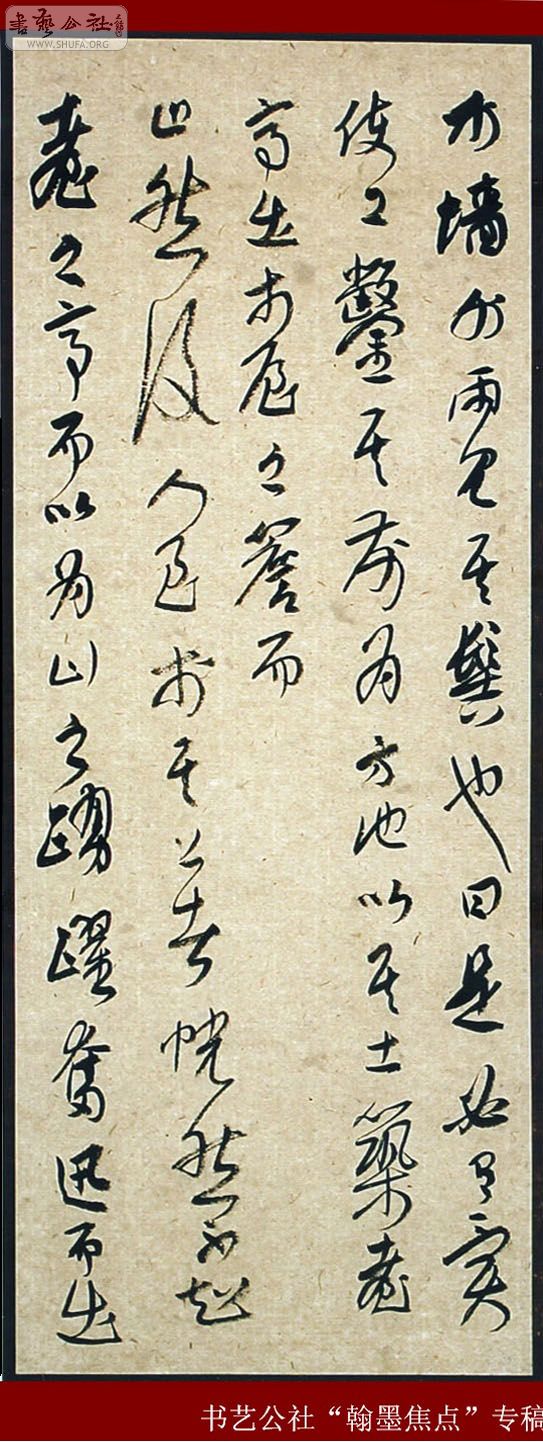 書藝公社
WWW.SHUFA.ORG
於墙外而見其髻也曰是必有異
使工鑿其前為方池以其土築臺
高出於屋之簷而
止然後人至於其上者恍然不知
臺之高而以為山之踴躍奮迅而出
书艺公社“翰墨焦点”专稿